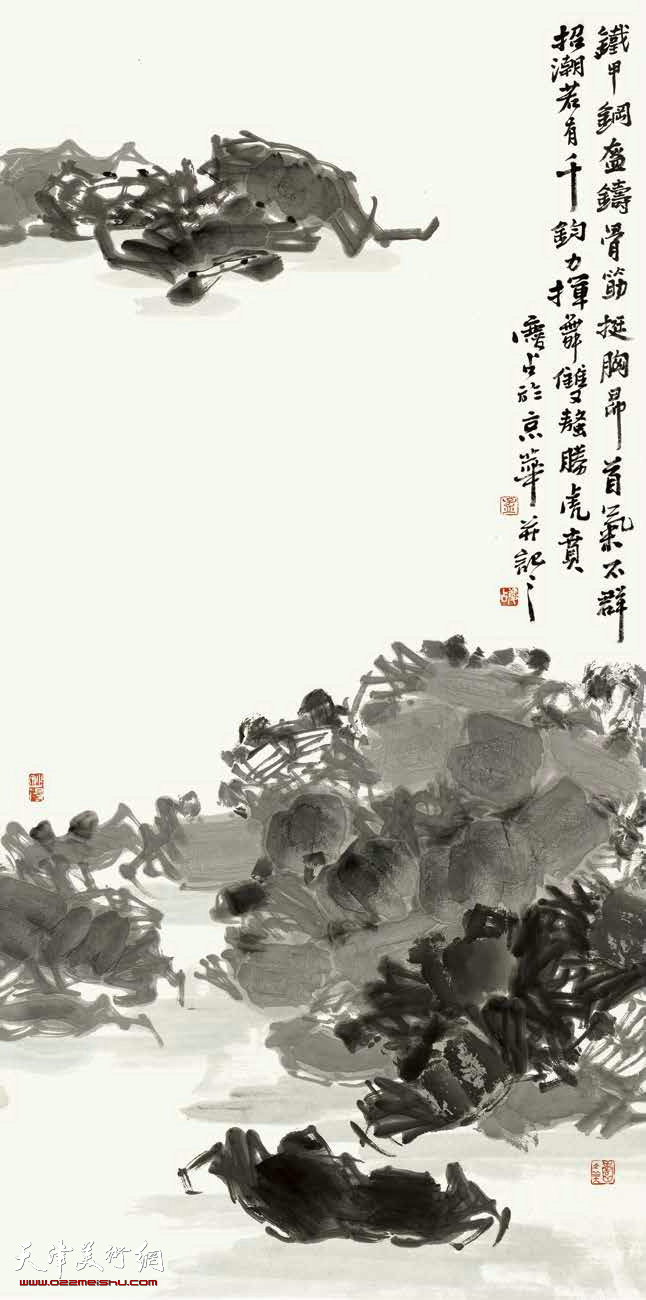 鐵甲鋼盔鑄骨筋挺胸昂首氣不群
招潮若有千鈞力揮舞雙螯勝虎賁
占於京華并記之
天津美術網
www.022meishu.com